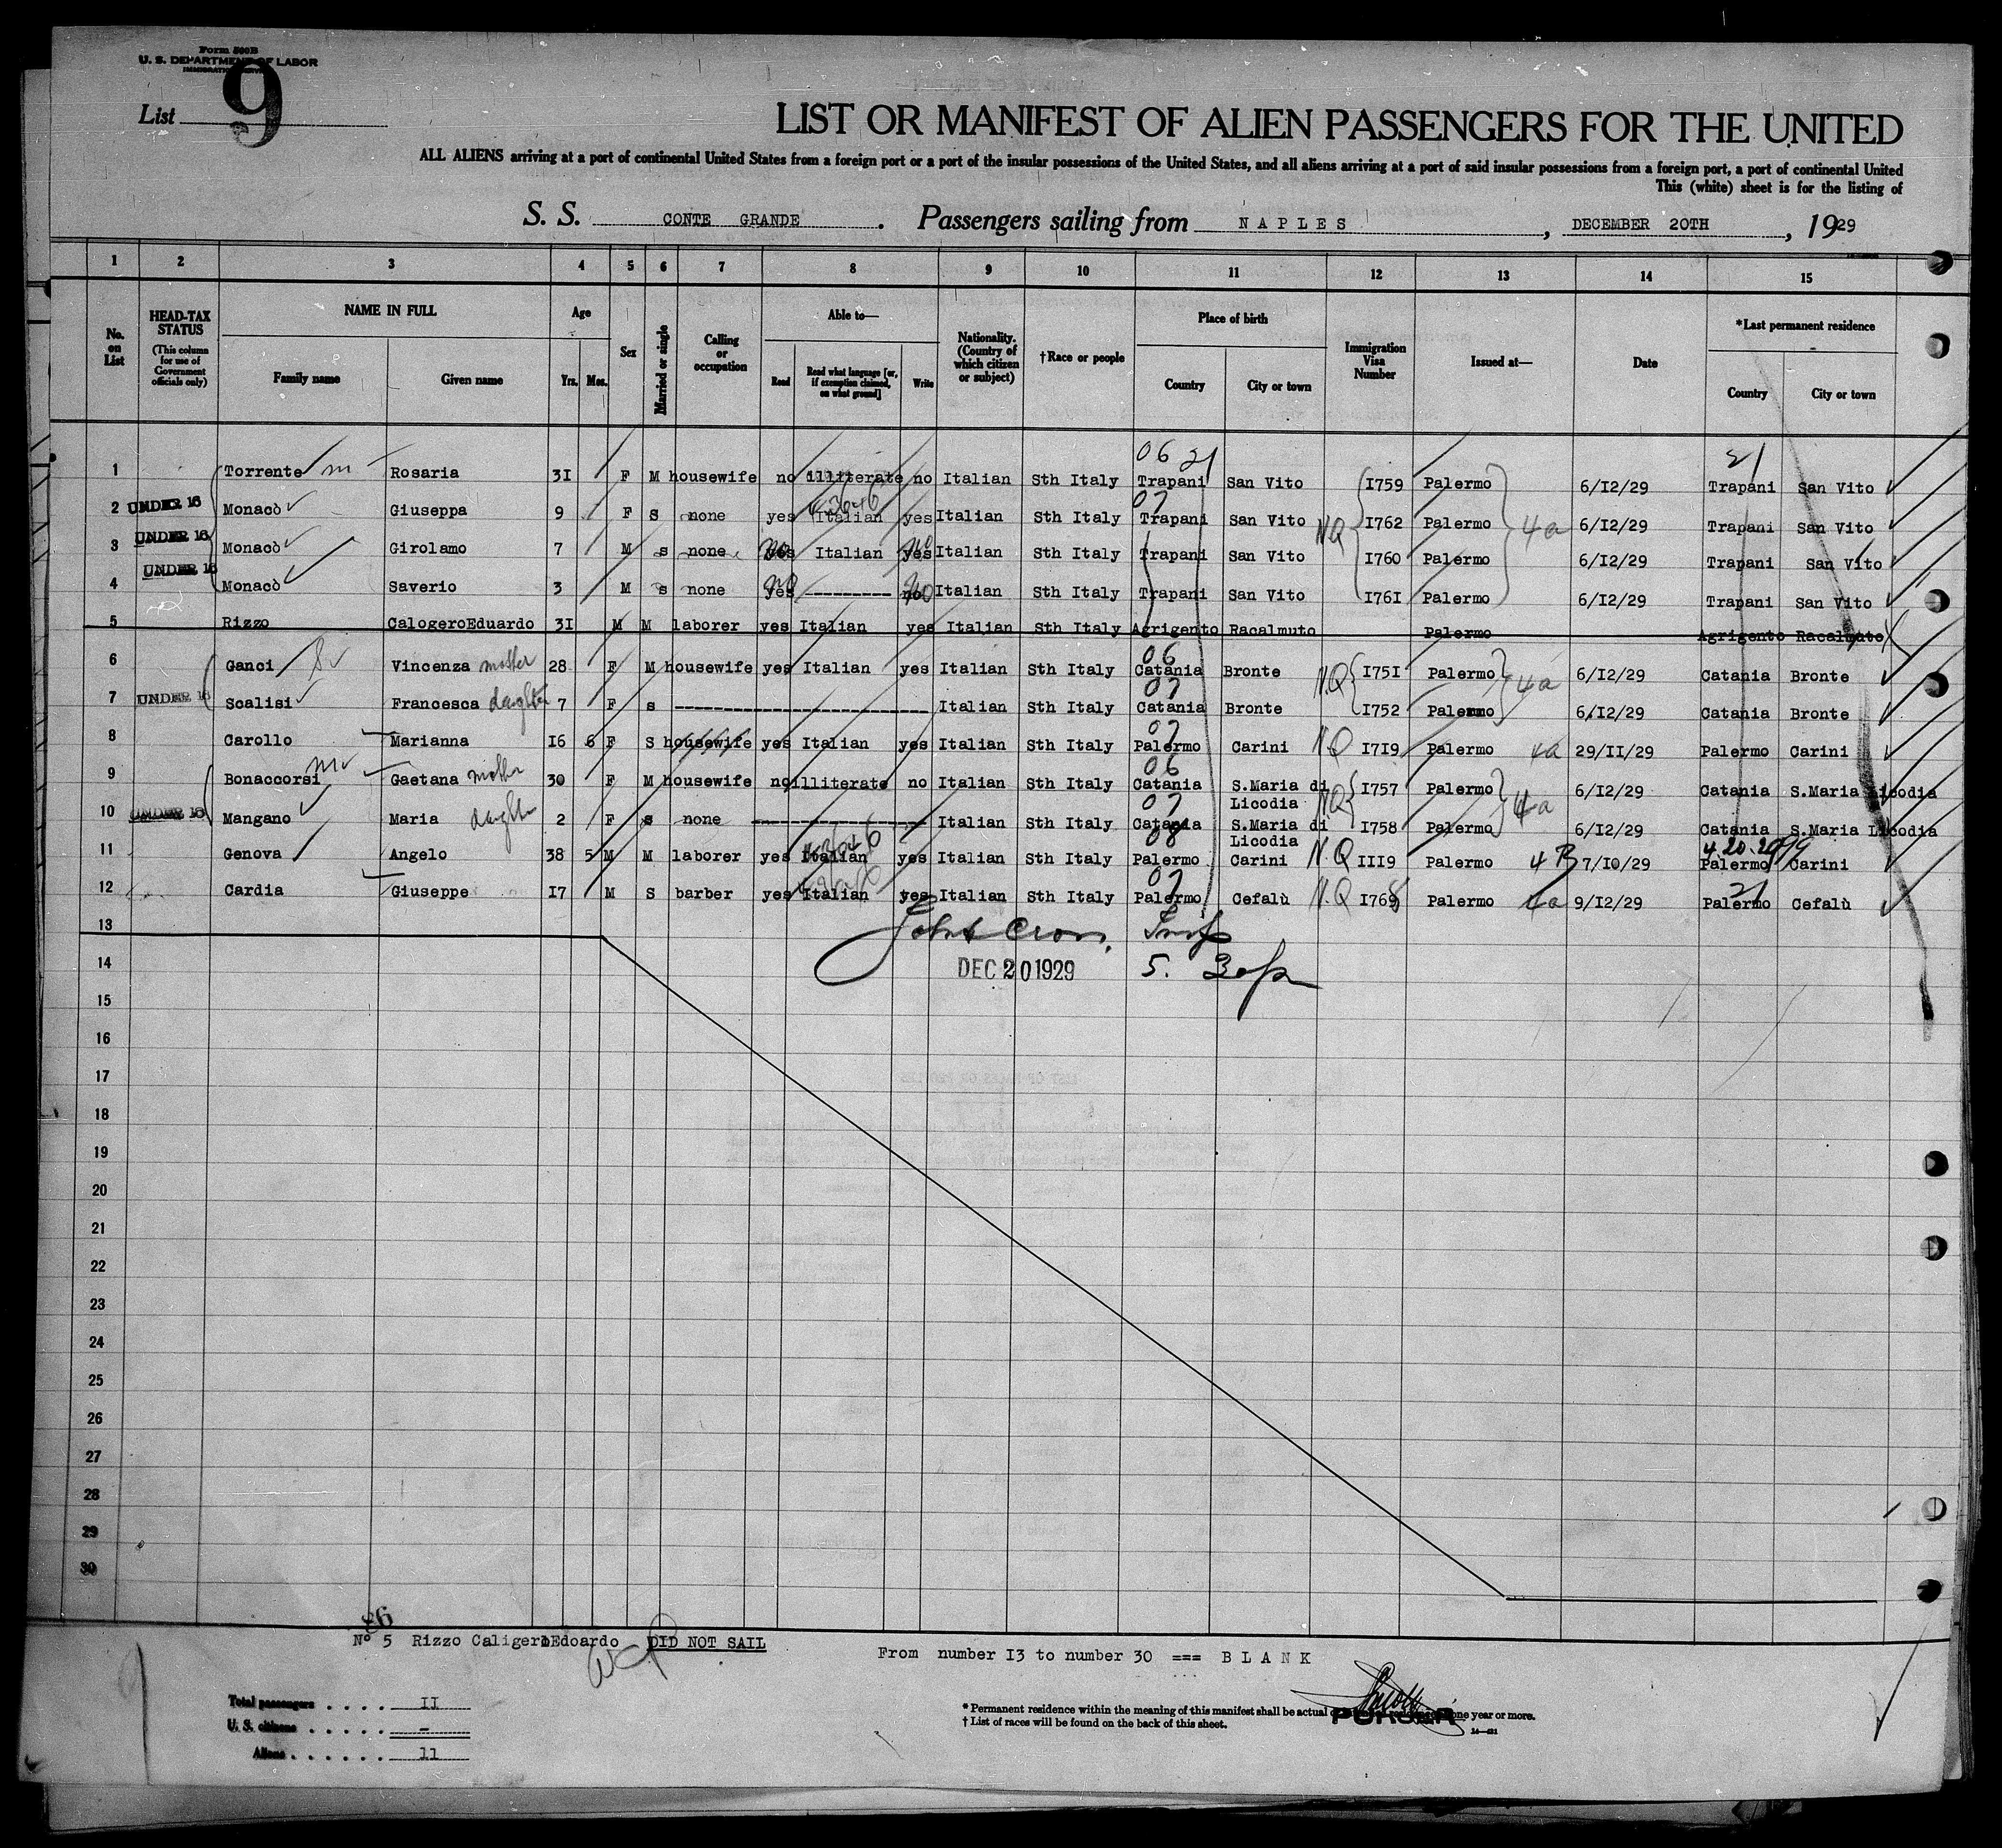 Form 500B
U. S. DEPARTMENT OF LABOR
IMMIGRATION SERVICE
List 9
LIST OR MANIFEST OF ALIEN PASSENGERS FOR THE UNITED
ALL ALIENS arriving at a port of continental United States from a foreign port or a port of the insular possessions of the United States, and all aliens arriving at a port of said insular possessions from a foreign port, a port of continental United
This (white) sheet is for the listing of
S. S. CONTE GRANDE. Passengers sailing from NAPLES, DECEMBER 20TH, 1929
1 2 3 4 5 6 7 8 9 10 11 12 13 14 15
No. on List
HEAD-TAX STATUS (This column for use of Government officials only)
NAME IN FULL
Family name Given name
Age
Yrs. Mos.
Sex
Married or single
Calling or occupation
Able to—
Read Read what language [or, if exemption claimed, on what ground] Write
Nationality. (Country of which citizen or subject)
†Race or people
Place of birth
Country City or town
Immigration Visa Number
Issued at—
Date
*Last permanent residence
Country City or town
06 21 21
1 Torrente m Rosaria 3I F M housewife no illiterate no Italian Sth Italy Trapani San Vito I759 Palermo 6/I2/29 Trapani San Vito
07
2 UNDER 16 Monacò Giuseppa 9 F S none yes Italian yes Italian Sth Italy Trapani San Vito NQ I762 Palermo 4a 6/I2/29 Trapani San Vito
3 UNDER 16 Monacò Girolamo 7 M s none yes no Italian yes no Italian Sth Italy Trapani San Vito I760 Palermo 6/I2/29 Trapani San Vito
4 UNDER 16 Monacò Saverio 3 M s none yes no --------- no Italian Sth Italy Trapani San Vito I76I Palermo 6/I2/29 Trapani San Vito
5 Rizzo CalogeroEduardo 3I M M laborer yes Italian yes Italian Sth Italy Agrigento Racalmuto Palermo Agrigento Racalmuto
06
6 Ganci Vincenza mother 28 F M housewife yes Italian yes Italian Sth Italy Catania Bronte N.Q I75I Palermo 4a 6/I2/29 Catania Bronte
07
7 UNDER 16 Scalisi Francesca daughter 7 F s Italian Sth Italy Catania Bronte I752 Palermo 6/I2/29 Catania Bronte
07
8 Carollo Marianna I6 6 F S housewife yes Italian yes Italian Sth Italy Palermo Carini NQ I7I9 Palermo 4a 29/II/29 Palermo Carini
06
9 Bonaccorsi m Gaetana mother 30 F M housewife no illiterate no Italian Sth Italy Catania S.Maria di Licodia NQ I757 Palermo 4a 6/I2/29 Catania S.Maria Licodia
07
10 UNDER 16 Mangano Maria daughter 2 F s none Italian Sth Italy Catania S.Maria di Licodia I758 Palermo 6/I2/29 Catania S.Maria Licodia
08
11 Genova Angelo 38 5 M M laborer yes Italian yes Italian Sth Italy Palermo Carini N.Q III9 Palermo 4B 7/I0/29 Palermo Carini
07 21
12 Cardia Giuseppe I7 M S barber yes Italian yes Italian Sth Italy Palermo Cefalù N.Q I768 Palermo 4a 9/I2/29 Palermo Cefalù
13
14 DEC 20 1929
15
16
17
18
19
20
21
22
23
24
25
26
27
28
29
30
Nº 5 Rizzo Caligero Edoardo DID NOT SAIL
From number I3 to number 30 === BLANK
Total passengers . . . . II
U. S. citizens . . . . . -
Aliens . . . . . . 11
* Permanent residence within the meaning of this manifest shall be actual or intended residence of one year or more.
† List of races will be found on the back of this sheet.
PURSER